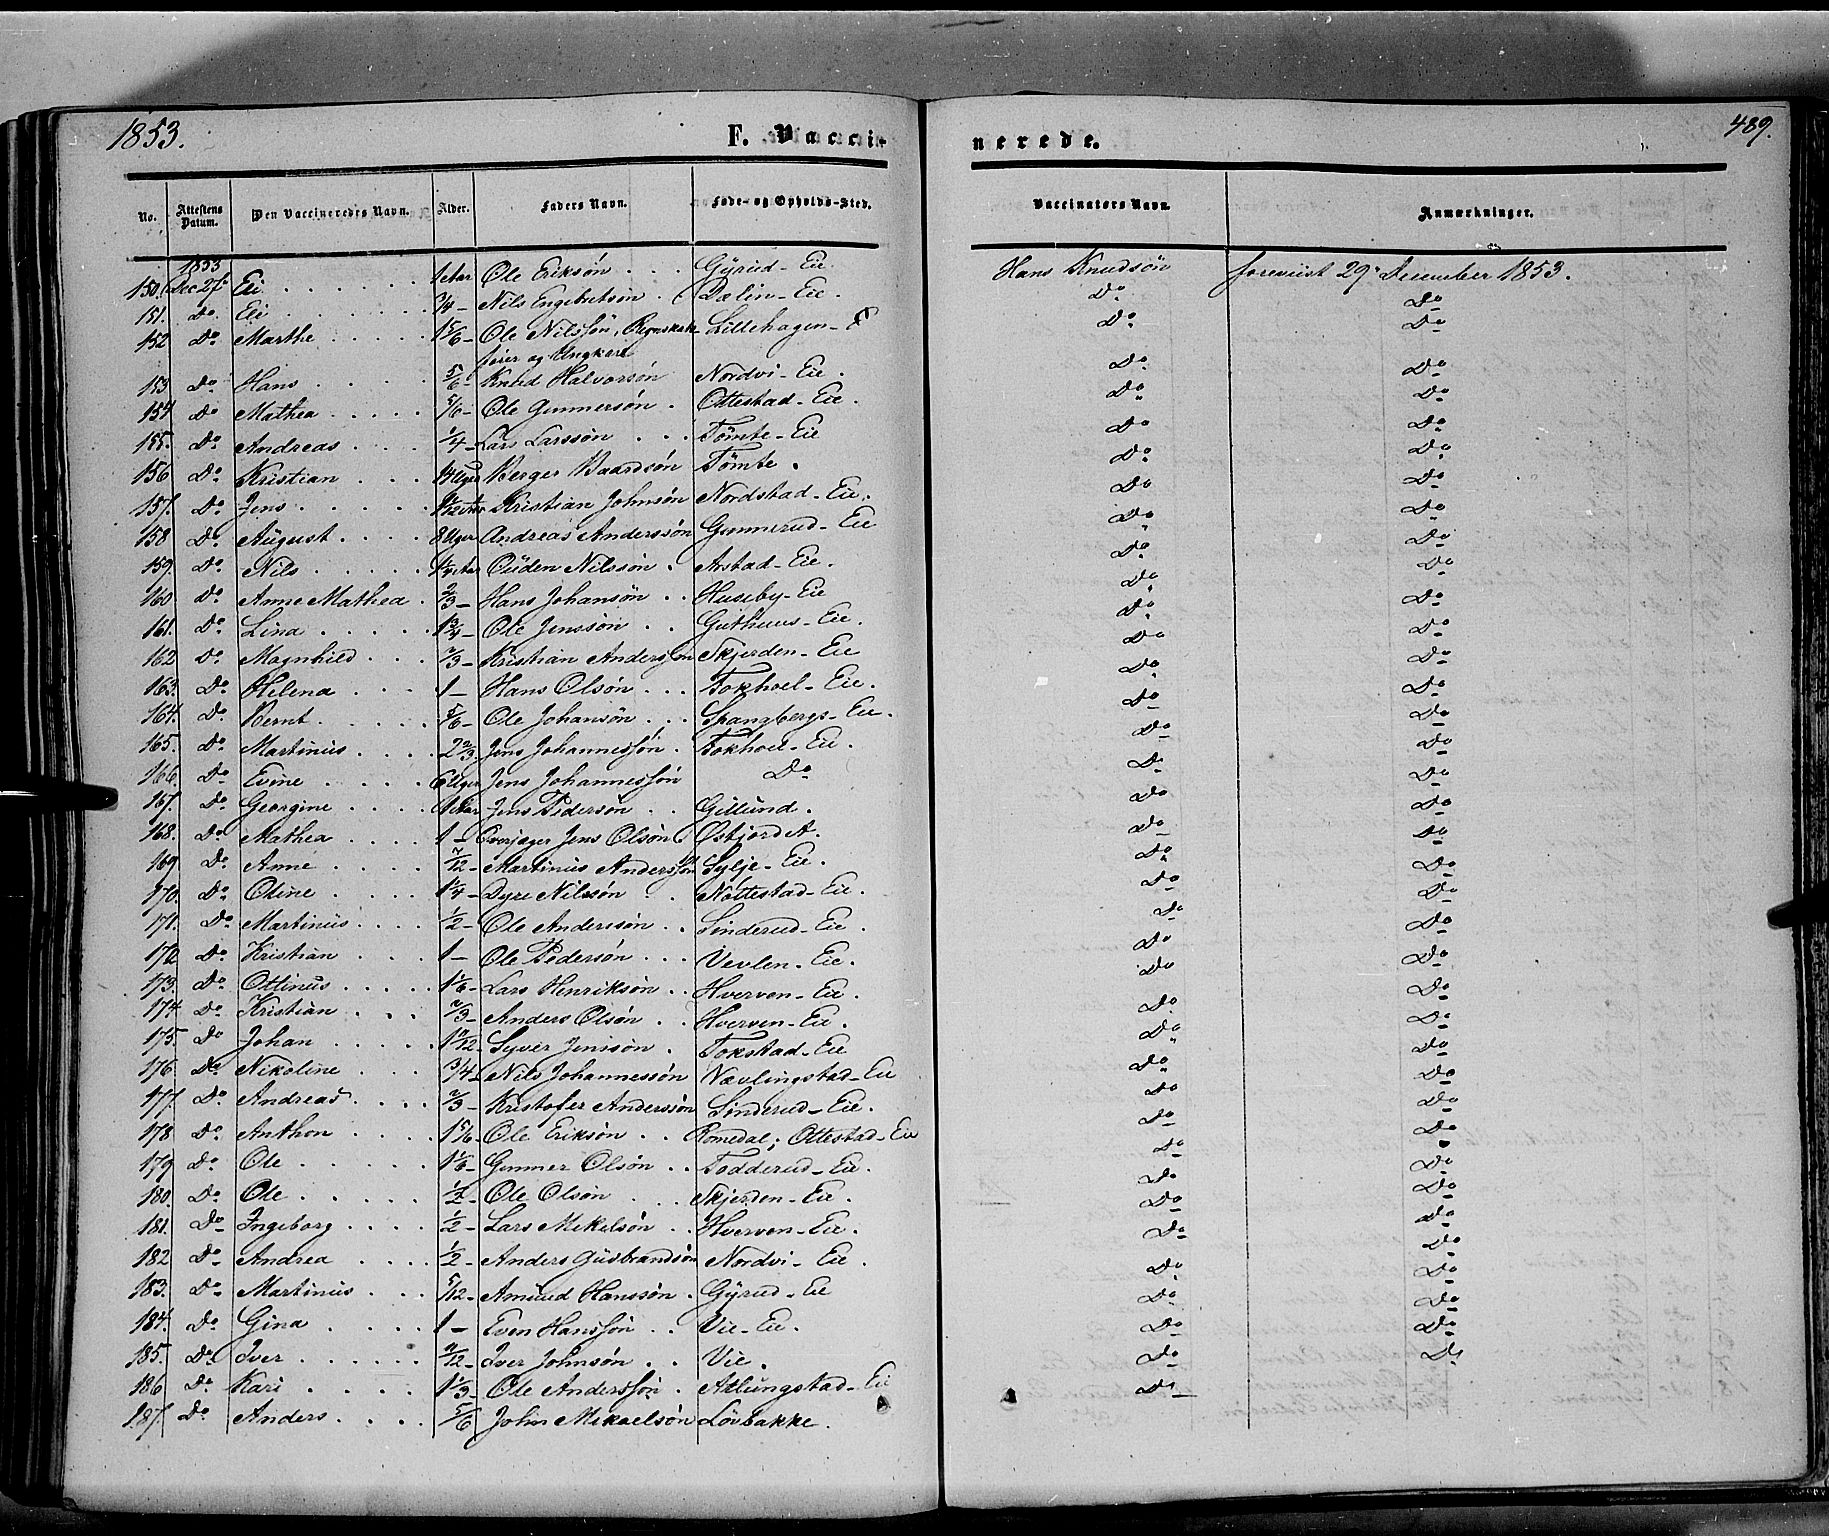 1853.
F. Vacci-
nerede.
489.
No. Attestens Datum. Den Vaccineredes Navn. Alder. Faders Navn. Føde- og Opholds-Sted. Vaccinators Navn. Anmærkninger.
1853
150. Dec 27 Eli . . . 1 Aar Ole Eriksøn . . . Gÿrüd-Eie. Hans Knudsön foreviist 29. December 1853.
151. Do Eli . . . 3/4 - Nils Engebretsön . . Dælin-Eie. Do Do
152 Do Marthe . . . 1 5/6 - Ole Nilssön, Lillehagen-E Do Do
feier og Ungkarl
153 Do Hans . . . 5/6 - Knud Halvorsön Nordvi-Eie. Do Do
154 Do Mathea . . . 5/6 - Ole Gunnersön . Ottestad-Eie. Do Do
155. Do Andreas . . . 1/4 - Lars Larssön . . . Tömte-Eie Do Do
156 Do Kristian . . . 14 Uger Berger Baardsön Tömte. Do Do
157. Do Jens . . . Kristian Johnsön Nordstad-Eie. Do Do
158 Do Aügust . . . 8 Uger Andreas Anderssön Gunnerud-Eie Do Do
159. Do Nils . . . Oüden Nilssön . Arstad-Eie. Do Do
160 Do Anne Mathea . 2/3 - Hans Johansön . . Huseby-Eie Do Do
161. Do Lina . . . 1 3/4 - Ole Jenssön . . Guthuus-Eie. Do Do
162 Do Magnhild . . . 2/3 - Kristian Anderssön Skjerden-Eie Do Do
163. Do Helena . . . 1 - Hans Olsön . . . Fokhoel-Eie. Do Do
164. Do Bernt . . . 5/6 - Ole Johansön . . . Spangbergs-Eie. Do Do
165. Do Martinus . . . 2 2/3 - Jens Johannessön . Fokhoel-Eie. Do Do
166 Do Evine . . . 6 Uger Jens Johannessön Do Do Do
167. Do Georgine . . . 1 Aar Jens Pedersön . . Gillund. Do Do
168. Do Mathea . . . 1 - Qverjæger Jens Olsön Østjordet. Do Do
169 Do Anne . . . 7/12 - Martinus Anderssön Sylje-Eie. Do Do
170. Do Oline . . . 1 1/4 - Dyre Nilssön . . Nottestad-Eie. Do Do
171. Do Martinüs . . . 1/2 - Ole Anderssön . . Sinderud-Eie. Do Do
172 Do Kristian . . . 1 - Ole Pedersön . . . Vevlen-Eie. Do Do
173. Do Ottinüs . . . 1 1/6 - Lars Henriksön . . Hverven-Eie. Do Do
174 Do Kristian . . . 2/3 - Anders Olsön . . Hverven-Eie. Do Do
175. Do Johan . . . Syver Jenssön . Fokstad-Eie Do Do
176. Do Nikoline . . . 3/4 - Nils Johannessön Nævlingstad-Eie Do Do
177. Do Andreas . . . 2/3 - Kristofer Anderssön Sinderud-Eie. Do Do
178 Do Anthon . . . 1 5/6 - Ole Eriksön . . Romedal; Ottestad-Eie Do Do
179 Do Ole . . . 1 1/6 - Gunner Olsön . . Fodderud-Eie. Do Do
180. Do Ole . . . 1/2 - Ole Olsön . . . Skjerden-Eie. Do Do
181. Do Ingeborg . . . 1/2 - Lars Mikelsön . . Hverven-Eie. Do Do
182 Do Andrea . . . 1/2 - Anders Güdbrandsön Nordvi-Eie. Do Do
183. Do Martinus . . . 5/12 - Amund Hanssön . Gÿrud-Eie Do Do
184. Do Gina . . . 1 - Even Hanssön . . Vie-Eie. Do Do
185. Do Iver . . . Iver Johnsön . . Vie. Do Do
186 Do Kari . . . 1 1/3 - Ole Anderssön . Atlungstad-Eie Do
187. Do Anders . . . 5/6 John Mikaelsön Lövbakke.